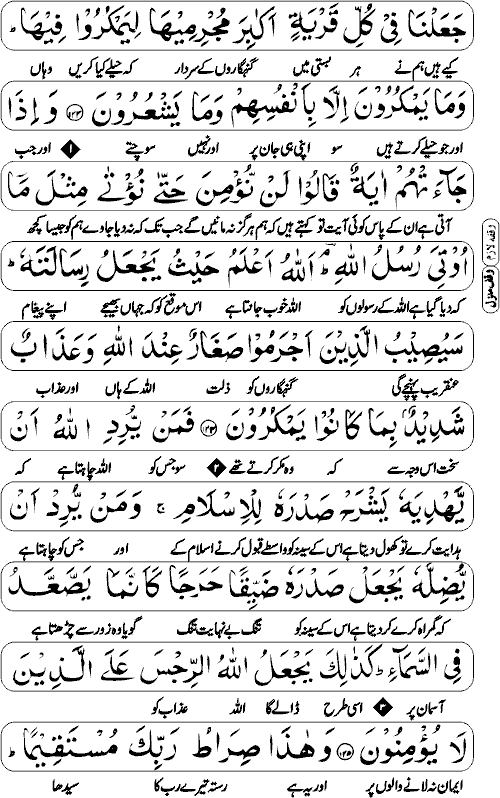 جَعَلْنَا فِیْ كُلِّ قَرْیَةٍ اَكٰبِرَ مُجْرِمِیْهَا لِیَمْكُرُوْا فِیْهَا ؕ
کیے ہیں ہم نے ہر بستی میں گنہگاروں کے سردار کہ حیلے کیا کریں وہاں
وَمَا یَمْكُرُوْنَ اِلَّا بِاَنْفُسِهِمْ وَمَا یَشْعُرُوْنَ ﴿۱۲۳﴾ وَ اِذَا
اور جو حیلے کرتے ہیں سو اپنی ہی جان پر اور نہیں سوچتے ۱ اور جب
جَآءَتْهُمْ اٰیَةٌ قَالُوْا لَنْ نُّؤْمِنَ حَتّٰی نُؤْتٰی مِثْلَ مَاۤ
آتی ہے ان کے پاس کوئی آیت تو کہتے ہیں کہ ہم ہرگز نہ مانیں گے جب تک کہ نہ دیا جاوے ہم کو جیسا کچھ
اُوْتِیَ رُسُلُ اللّٰهِ ؔۘؕ اَللّٰهُ اَعْلَمُ حَیْثُ یَجْعَلُ رِسَالَتَهٗ ؕ
وقف لازم وقف منزل
کہ دیا گیا ہے اللہ کے رسولوں کو اللہ خوب جانتا ہے اس موقع کو کہ جہاں بھیجے اپنے پیغام
سَیُصِیْبُ الَّذِیْنَ اَجْرَمُوْا صَغَارٌ عِنْدَ اللّٰهِ وَعَذَابٌ
عنقریب پہنچے گی گنہگاروں کو ذلت اللہ کے ہاں اور عذاب
شَدِیْدٌۢ بِمَا كَانُوْا یَمْكُرُوْنَ ﴿۱۲۴﴾ فَمَنْ یُّرِدِ اللّٰهُ اَنْ
سخت اس وجہ سے کہ وہ مکر کرتے تھے ۲ سو جس کو اللہ چاہتا ہے کہ
یَّهْدِیَهٗ یَشْرَحْ صَدْرَهٗ لِلْاِسْلَامِ ۚ وَمَنْ یُّرِدْ اَنْ
ہدایت کرے تو کھول دیتا ہے اس کے سینہ کو واسطے قبول کرنے اسلام کے اور جس کو چاہتا ہے
یُّضِلَّهٗ یَجْعَلْ صَدْرَهٗ ضَیِّقًا حَرَجًا كَاَنَّمَا یَصَّعَّدُ
کہ گمراہ کرے کر دیتا ہے اس کے سینہ کو تنگ بے نہایت تنگ گویا وہ زور سے چڑھتا ہے
فِی السَّمَآءِ ؕ كَذٰلِكَ یَجْعَلُ اللّٰهُ الرِّجْسَ عَلَی الَّذِیْنَ
آسمان پر ۳ اسی طرح ڈالے گا اللہ عذاب کو
لَا یُؤْمِنُوْنَ ﴿۱۲۵﴾ وَهٰذَا صِرَاطُ رَبِّكَ مُسْتَقِیْمًا ؕ
ایمان نہ لانے والوں پر اور یہ ہے رستہ تیرے رب کا سیدھا